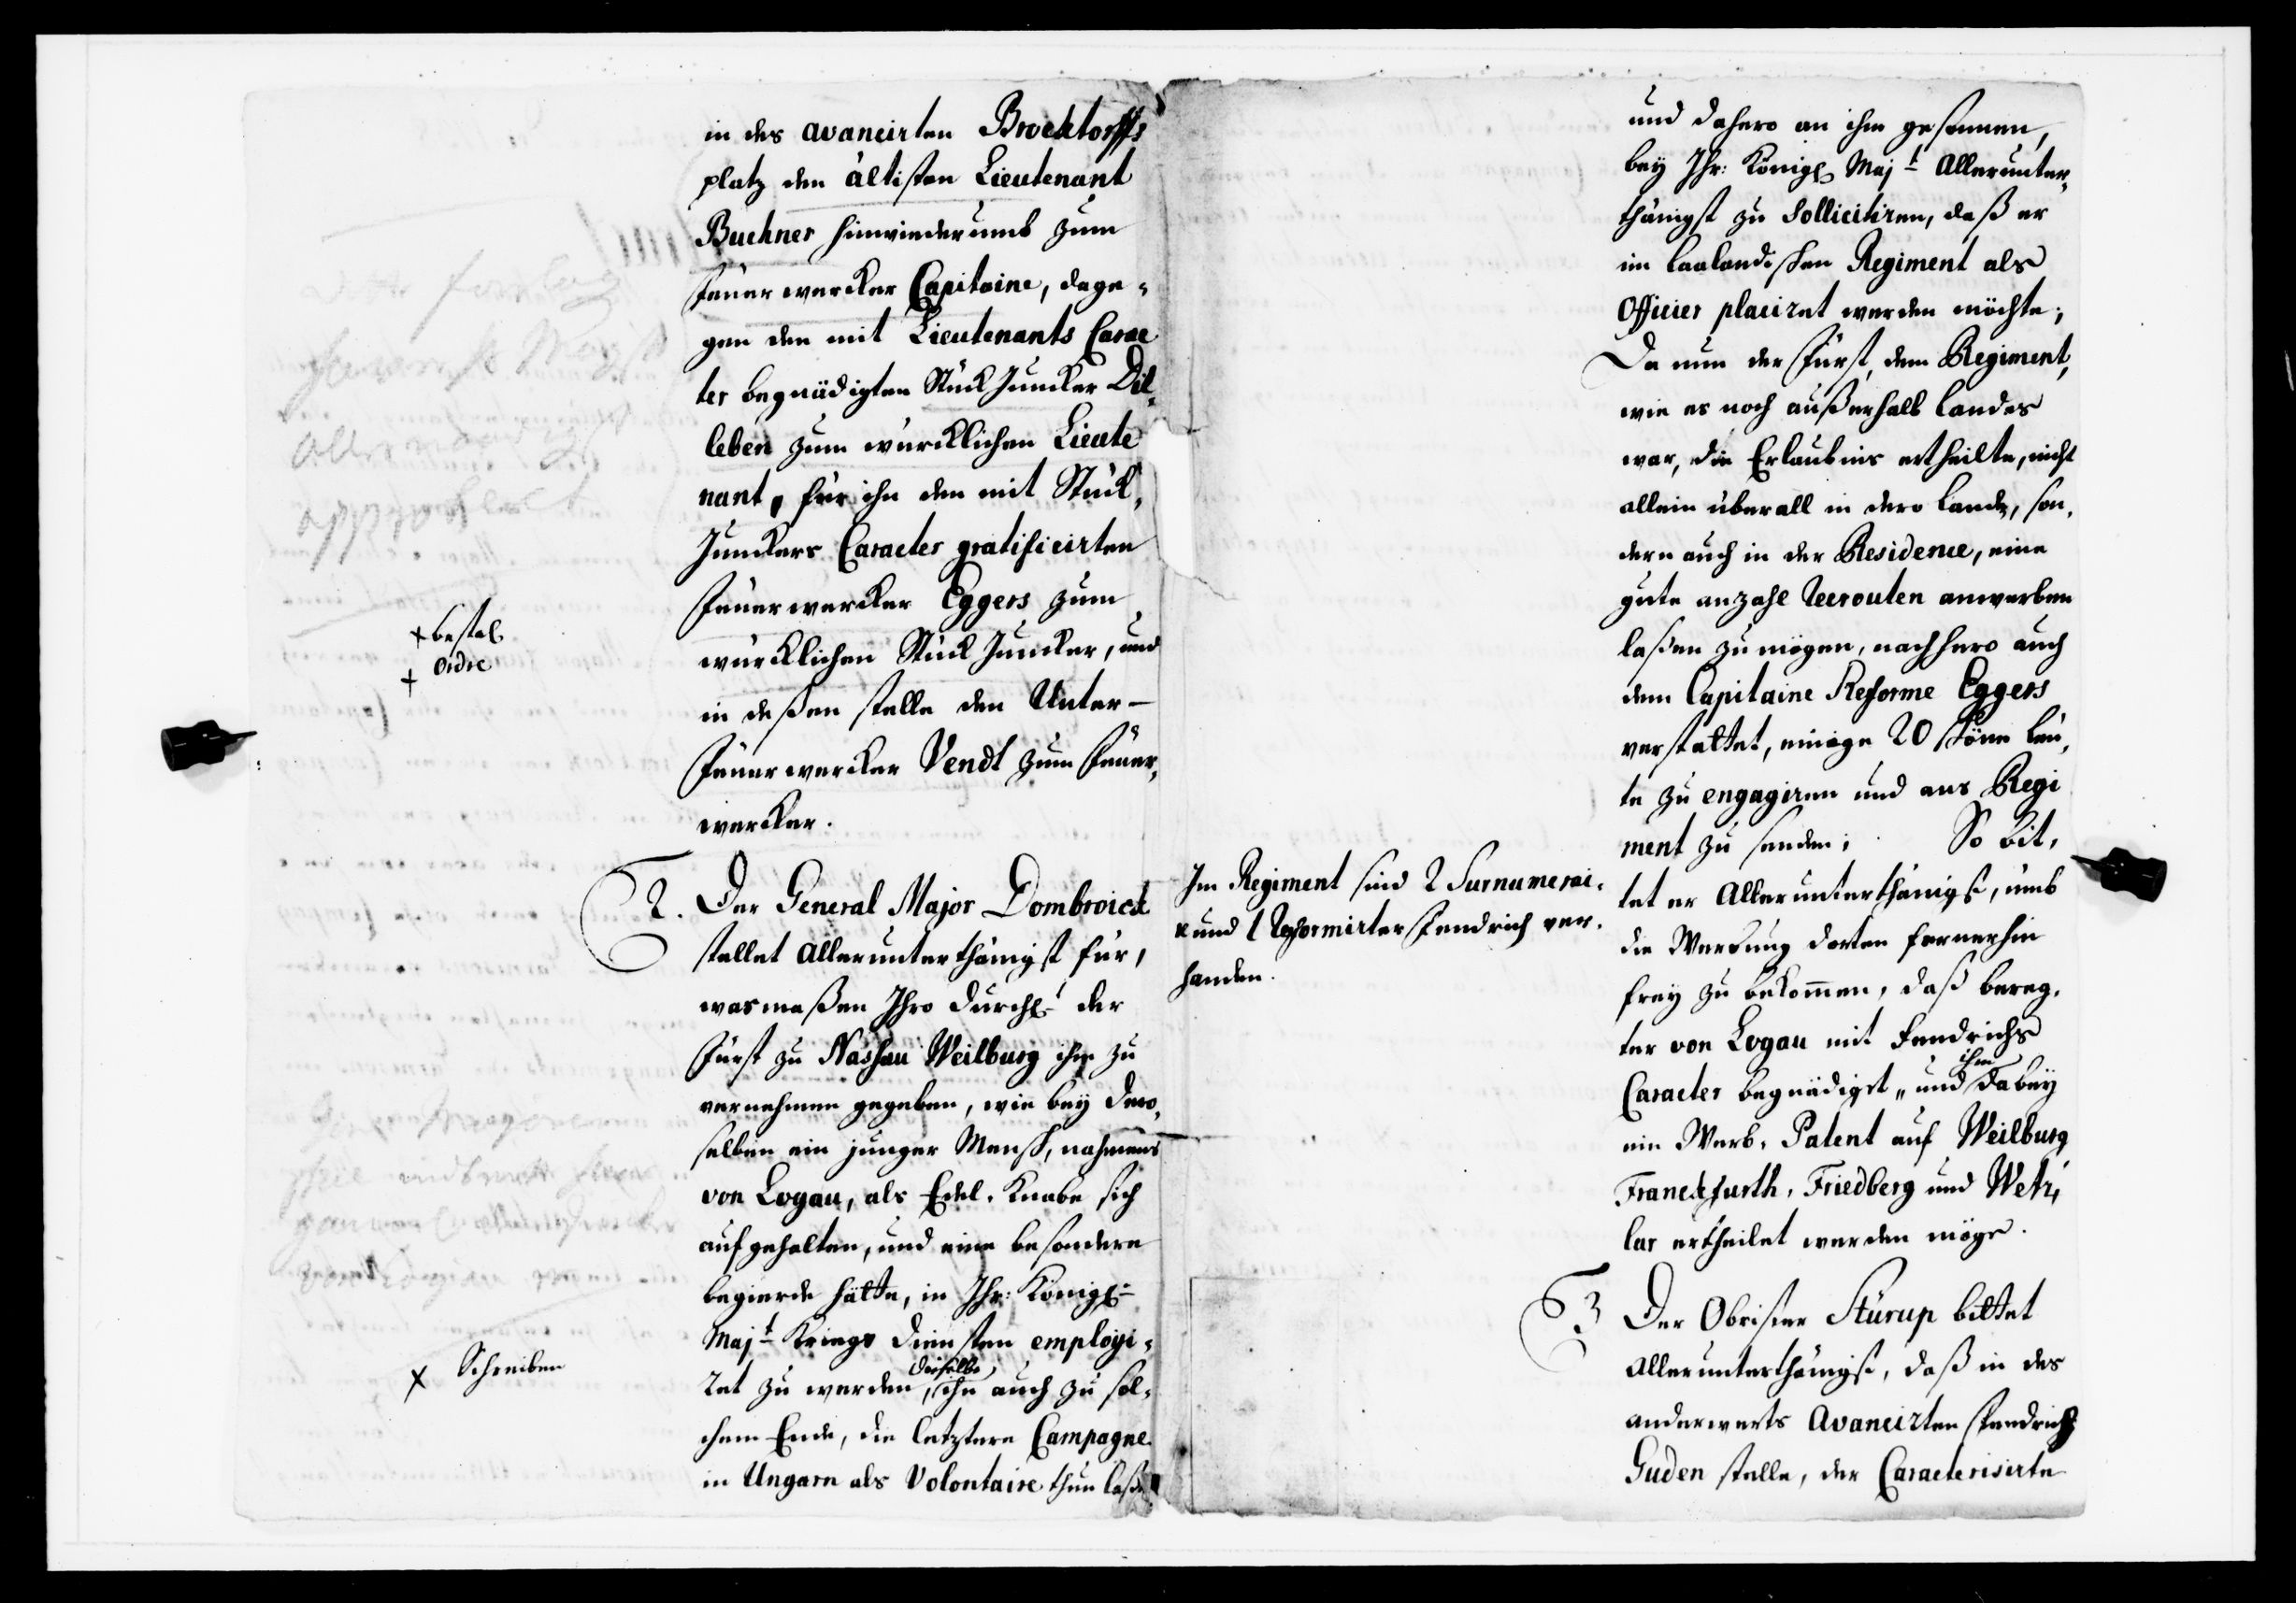 in des avancirten Brocktorffs
platz den ältisten Lieutenant
Buchner hinwiederumb zum
Feuerwercker Capitaine, dage-
gen den mit Lieutenants Carac
ter begnädigten Stück Juncker Dit-
leben zum würcklichen Lieute
nant, für ihn den mit Stück-
Junckers Caracter gratificirten
Feuerwercker Eggers zum
würcklichen Stück Juncker, und
in deßen stelle den Unter-
Feuerwercker Vendt zum Feuer-
wercker.
x bestal
+ Ordre
2. Der General Major Dombroick
stellet Allerunterthänigst für,
wasmaßen Ihro Durchl. der
Fürst zu Nassau Weilburg ihm zu
vernehmen gegeben, wie bey Dero-
selben ein junger Mensch, nahmens
von Logau, als Edel-Knabe sich
aufgehalten, und eine besondere
begierde hätte, in Ihr: Königl.
Majt. Kriegs Diensten employi-
ret zu werden, dieselbe ihn auch zu sol-
chem Ende, die letztere Campagne
in Ungarn als Volontaire thun laßen
x Schreiben
und dahero an ihn gesonnen,
bey Ihr: Königl. Majt. Allerunter-
thänigst zu Sollicitiren, daß er
im Laalandischen Regiment als
Officier placiret werden möchte;
Da nun der Fürst, dem Regiment,
wie es noch außerhalb Landes
war, die Erlaubnis ertheilte, nicht
allein überall in dero Lande, son-
dern auch in der Residence, eine
gute anzahl Recrouten anwerben
laßen zu mögen, nachhero auch
dem Capitaine Reforme Eggers
verstattet, einige 20 schöne Leu-
te zu engagiren und ans Regi
ment zu senden; So bit-
tet er Allerunterthänigst, umb
die Werbung dorten fernerhin
frey zu bekommen, daß bereg-
ter von Logau mit Fendrichs
Caracter begnädiget, und ihm dabey
ein Werb-Patent auf Weilburg
Franckfurth, Friedberg und Wetz-
lar ertheilet werden möge.
Im Regiment sind 2 Surnumerai-
re und 1 Reformirter Fendrich ver-
handen.
3 Der Obrister Stürup bittet
Allerunterthänigst, daß in des
anderwerts Avancirten Fendrich
Guden stelle, der Caracterisirte